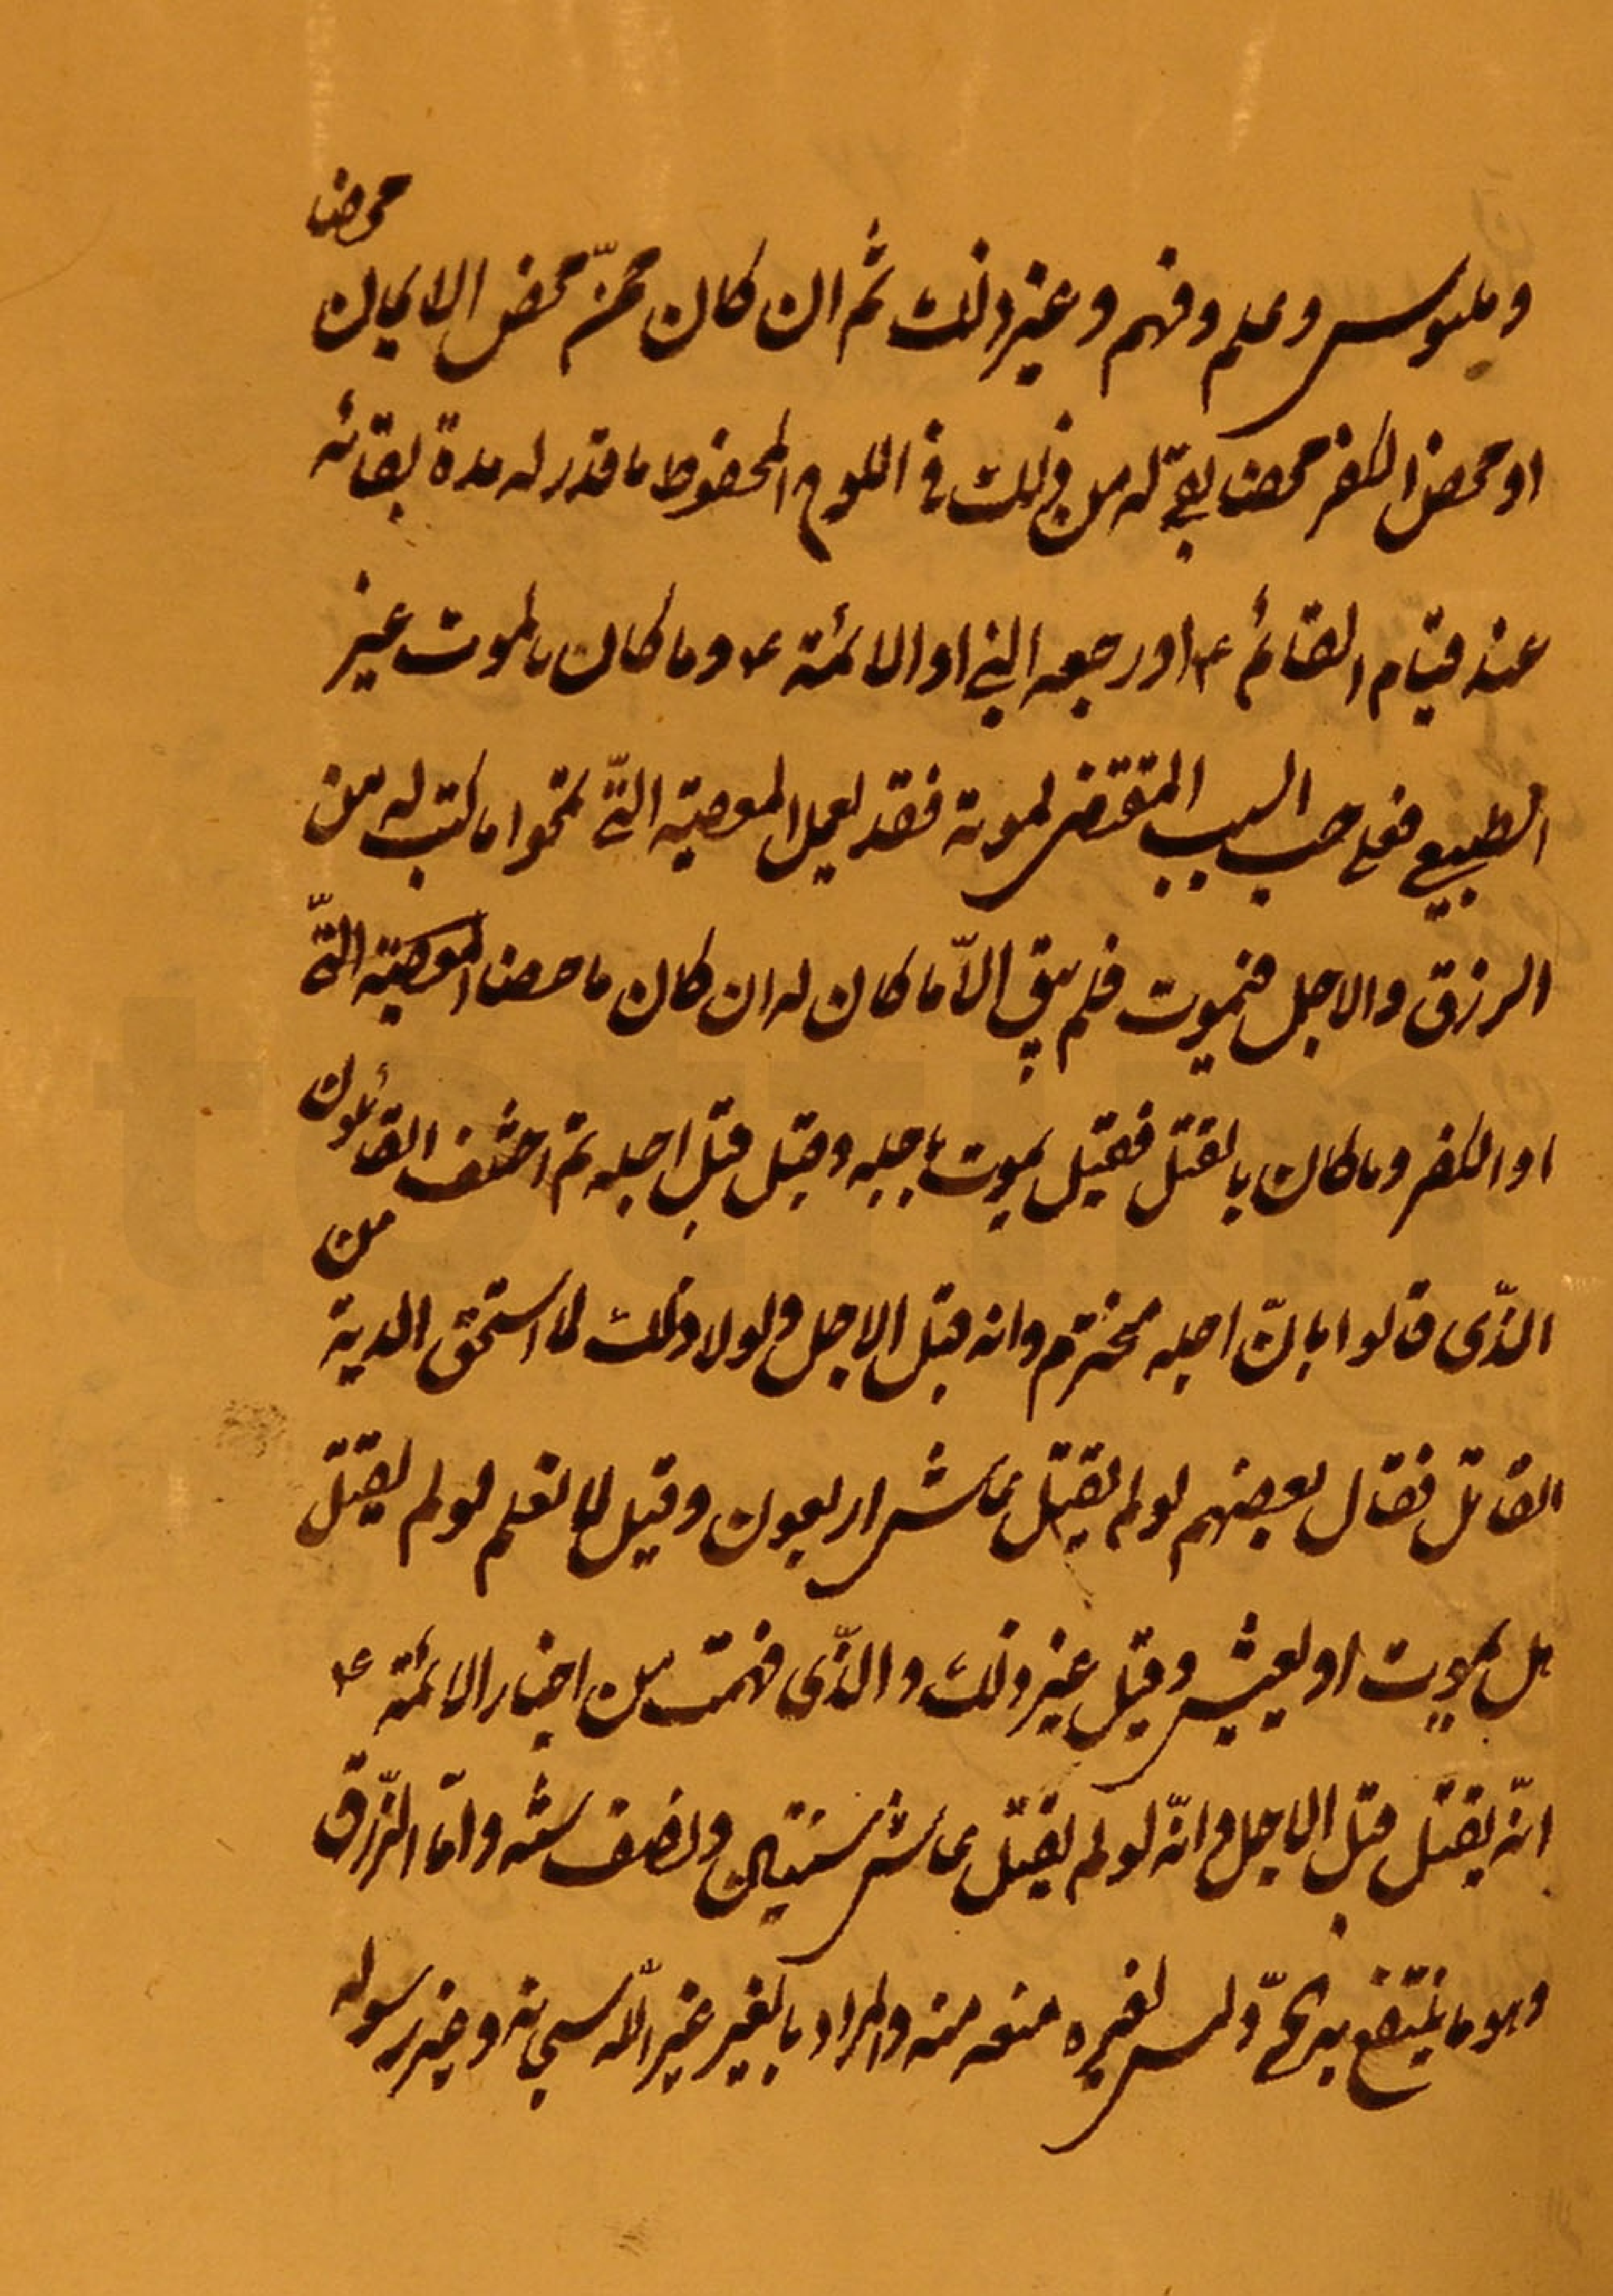 وملبوس وعلم وفهم وغير ذلك ثم ان كان ممّن محض الايمان محضا
او محض الكفر محضا بقي له من ذلك في اللوح المحفوظ ما قدر له مدة بقائه
عند قيام القائم ع اورجعه النبي او الائمة ع وما كان بالموت غير
الطبيعي فعلى حسب السبب المقتضى لموته فقد يعمل المعصية الّتي تمحوا ما كتب له من
الرزق والاجل فيموت فلم يبق الّا ما كان له ان كان ماحضا المعصية التّي
او الكفر وما كان بالقتل فقيل يموت باجله وقيل قبل اجله ثم اختلف القائلون
الذّى قالوا بانّ اجله مخترم وانه قبل الاجل ولولا ذلك لما استحق الدية من
القاتل فقال بعضهم لو لم يقتل عاش اربعون وقيل لا نعلم لو لم يقتل
هل يموت او يعيش وقيل غير ذلك والذّى فهمت من اخبار الائمة ع
انّه يقتل قبل الاجل وانّه لو لم يقتل عاش سنتين ونصف سنه وامّا الرّزق
وهو ما ينتفع به حيّ وليس لغيره منعه منه والمراد بالغير غير الله سبحانه وغير رسوله